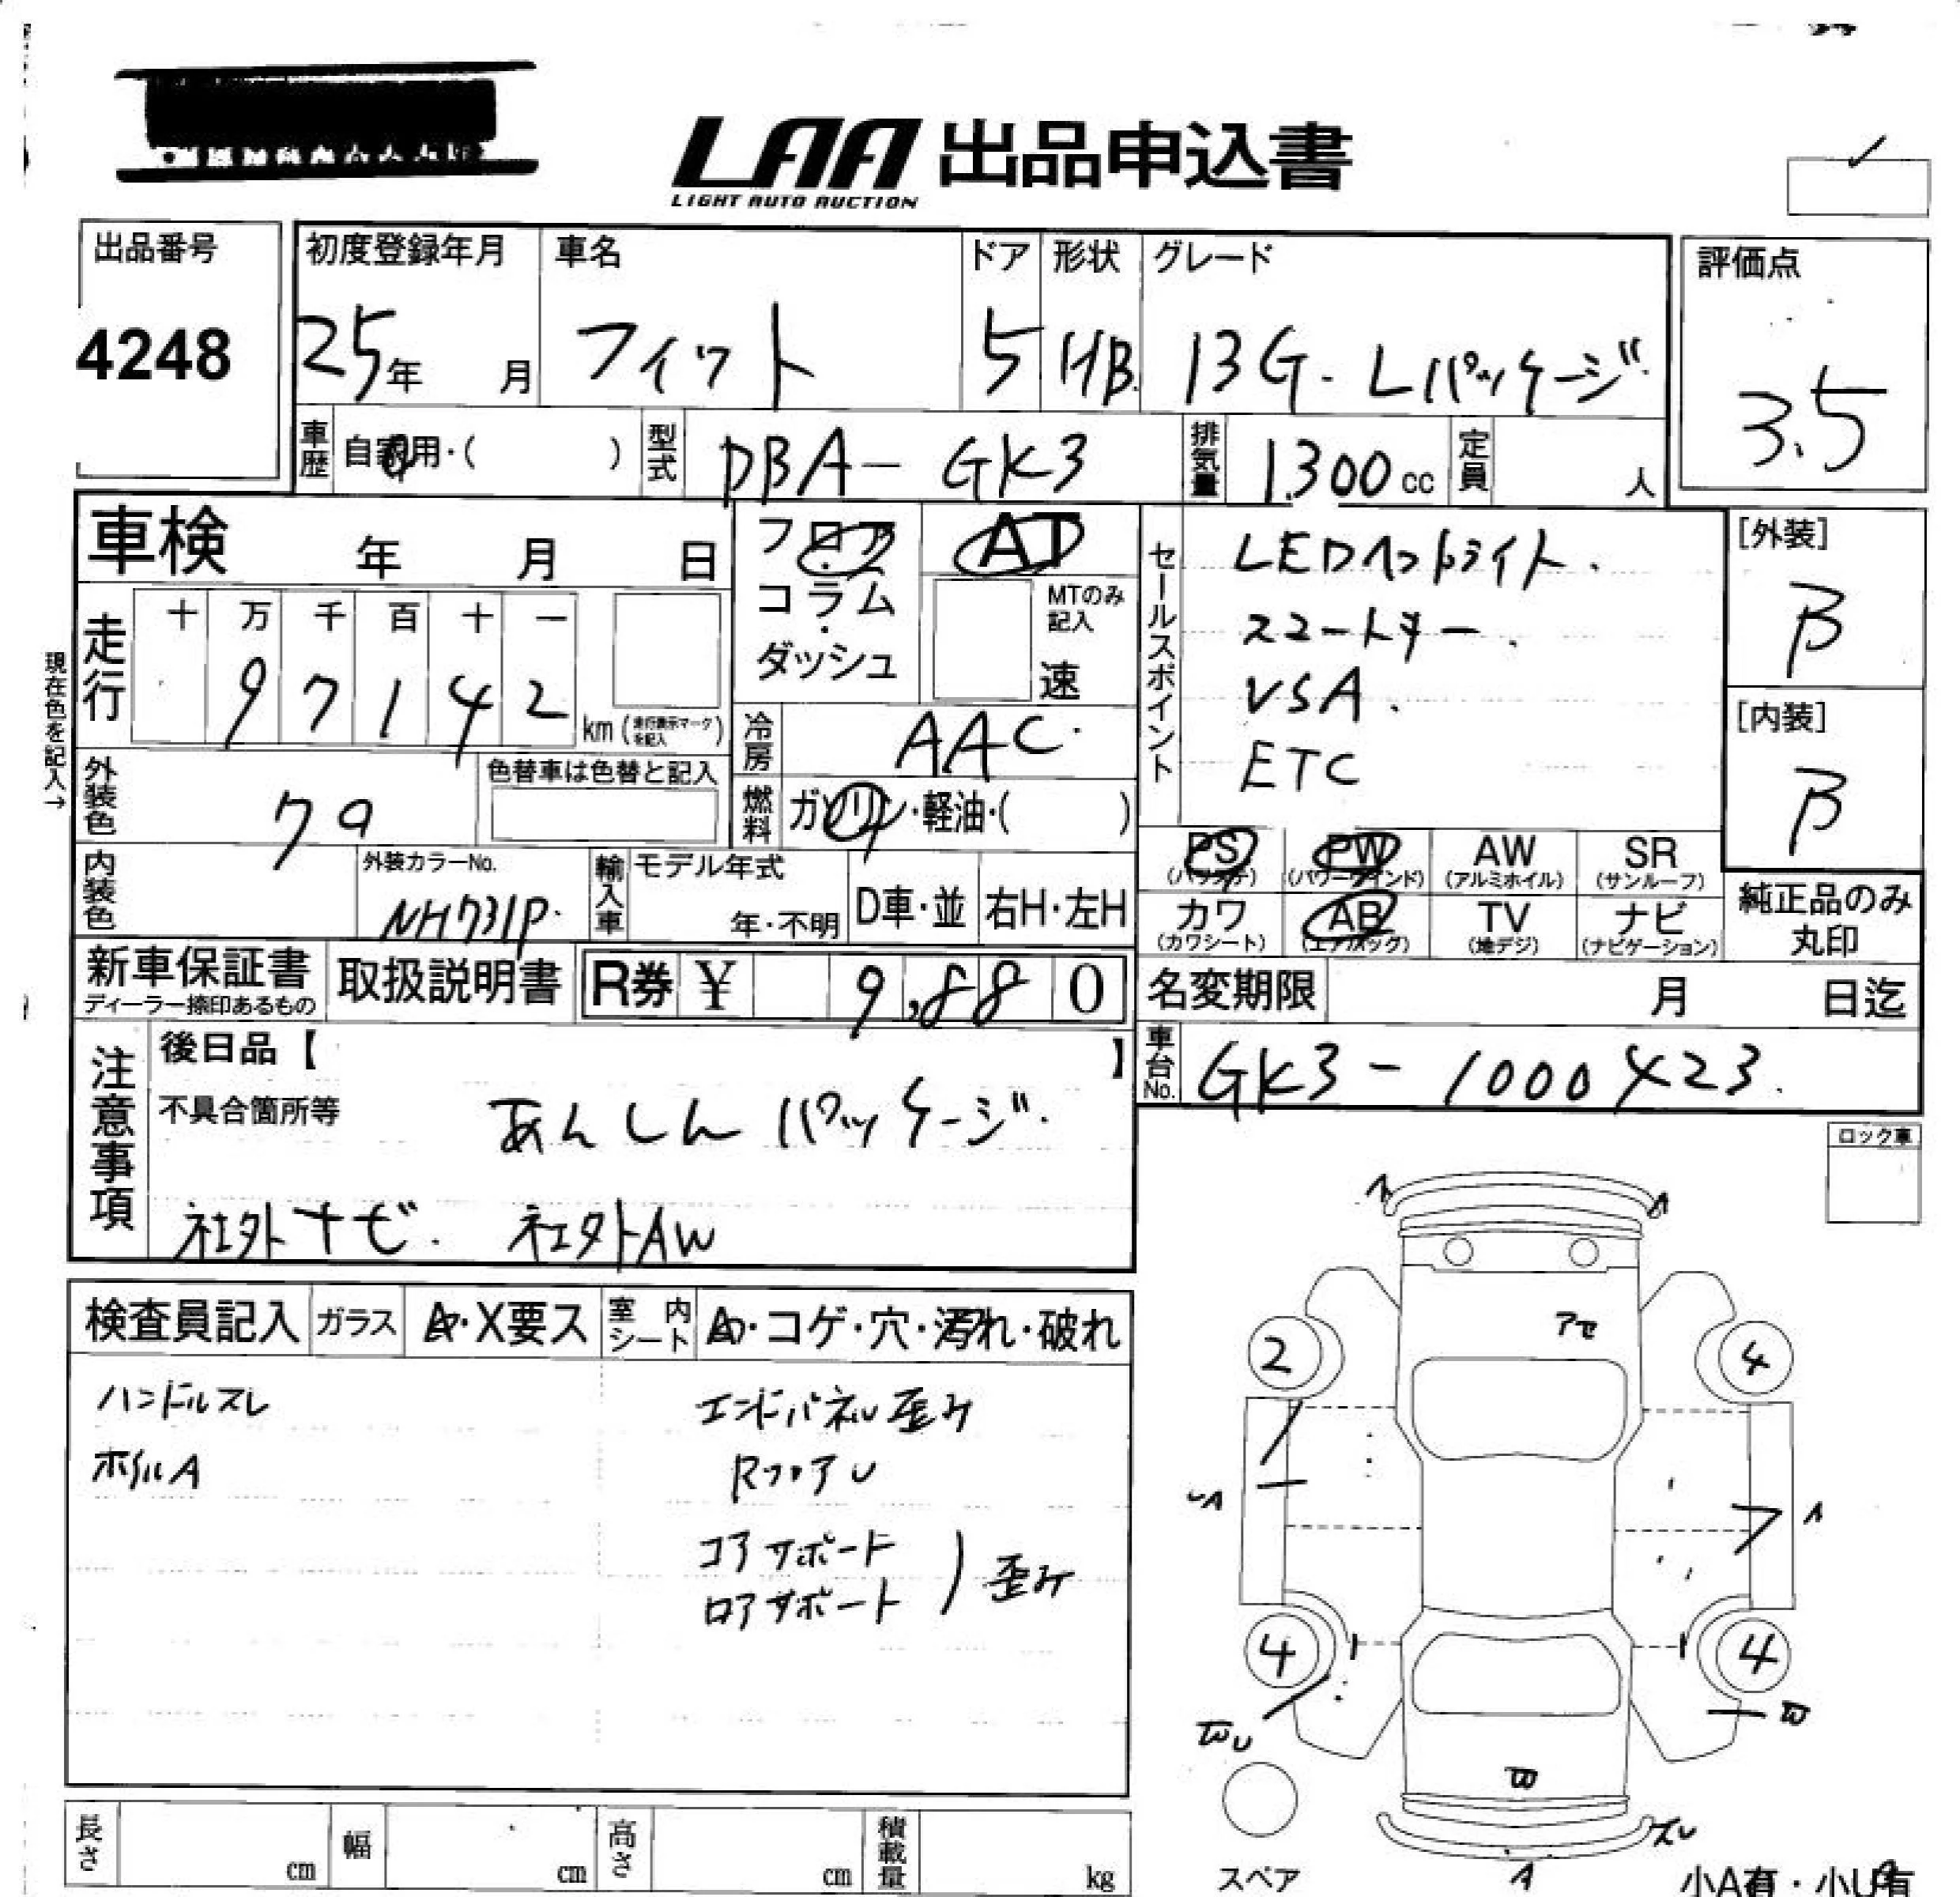 LAA 出品申込書
LIGHT AUTO AUCTION
出品番号
4248
初度登録年月
25年 月
車名
フィット
ドア
5
形状
HB
グレード
13G-Lパッケージ
評価点
3.5
車歴 自家用・( )
型式 DBA-GK3
排気量 1300cc
定員 人
車検 年 月 日
フロア
コラム
ダッシュ
AT
MTのみ記入
速
セールスポイント
LEDヘットライト.
スマートキー.
VSA.
ETC
[外装]
B
[内装]
B
現在色を記入→
走行
十 万 千 百 十 一
97142
km (走行表示マークを記入)
冷房 AAC.
燃料 ガソリン・軽油・( )
外装色 クロ
色替車は色替と記入
内装色
外装カラーNo.
NH731P.
輸入車
モデル年式
年・不明
D車・並
右H・左H
PS (パワステ)
PW (パワーウィンド)
AW (アルミホイル)
SR (サンルーフ)
カワ (カワシート)
AB (エアバッグ)
TV (地デジ)
ナビ (ナビゲーション)
純正品のみ丸印
新車保証書
ディーラー捺印あるもの
取扱説明書
R券 ¥ 9,880
名変期限 月 日迄
車台No. GK3-1000423.
注意事項
後日品【 】
不具合箇所等
あんしんパッケージ.
社外ナビ. 社外AW
ロック車
検査員記入
ガラス A・X要ス
室内シート
・コゲ・穴・汚れ・破れ
ハンドルスレ
ホイルA
エンドパネル歪み
RフロアU
コアサポート
ロアサポート
歪み
アセ
2
4
UA
A
4
4
WU
W
W
スペア
A
小A有・小U有
長さ cm
幅 cm
高さ cm
積載量 kg